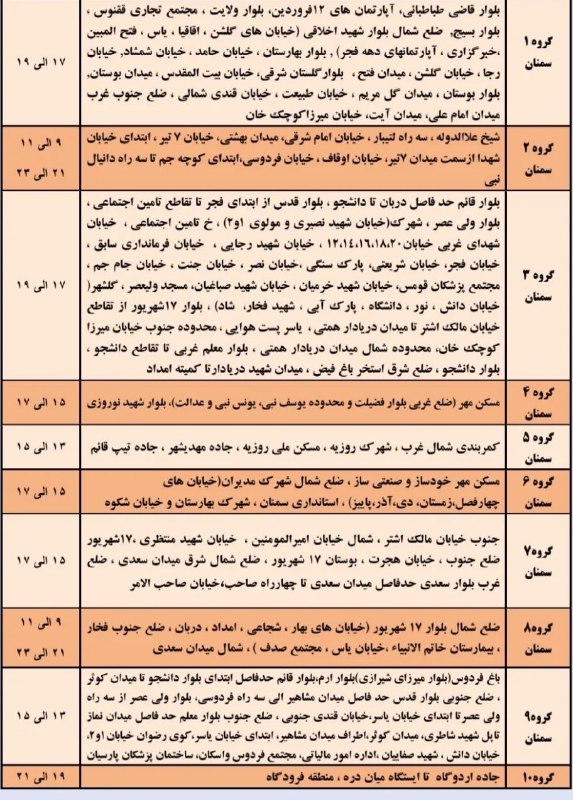 گروه ۱
سمنان
بلوار قاضی طباطبائی، آپارتمان های ۱۲فروردین، بلوار ولایت ، مجتمع تجاری ققنوس ،
بلوار بسیج، ضلع شمال بلوار شهید اخلاقی (خیابان های گلشن ، اقاقیا ، یاس ، فتح المبین
،خبرگزاری ، آپارتمانهای دهه فجر) , بلوار بهارستان ، خیابان حامد ، خیابان شمشاد, خیابان
رجا ، خیابان گلشن ، میدان فتح ، بلوارگلستان شرقی، خیابان بیت المقدس ، میدان بوستان,
بلوار بوستان ، میدان گل مریم ، خیابان طبیعت ، خیابان قندی شمالی ، ضلع جنوب غرب
میدان امام علی، میدان آیت، خیابان میرزاکوچک خان
۱۷ الی ۱۹
گروه ۲
سمنان
شیخ علاالدوله ، سه راه لتیبار ، خیابان امام شرقی، میدان بهشتی، خیابان ۷ تیر ، ابتدای خیابان
شهدا ازسمت میدان ۷تیر، خیابان اوقاف ، خیابان فردوسی،ابتدای کوچه جم تا سه راه دانیال
نبی
۹ الی ۱۱
۲۱ الی ۲۳
گروه ۳
سمنان
بلوار قائم حد فاصل دربان تا دانشجو ، بلوار قدس از ابتدای فجر تا تقاطع تامین اجتماعی ,
بلوار ولی عصر ، شهرک(خیابان شهید نصیری و مولوی ۱و۲) ، خ تامین اجتماعی ، خیابان
شهدای غربی خیابان۱۲،۱۴،۱۶،۱۸،۲۰ ، خیابان شهید رجایی ، خیابان فرمانداری سابق ،
خیابان فجر، خیابان شریعتی، پارک سنگی ،خیابان نصر ، خیابان جنت ، خیابان جام جم ،
مجتمع پزشکان قومس، خیابان شهید خرمیان ، خیابان شهید صباغیان، مسجد ولیعصر ، گلشهر(
خیابان دانش ، نور ، دانشگاه ، پارک آبی ، شهید فخار، شاد) ، بلوار ۱۷شهریور از تقاطع
خیابان مالک اشتر تا میدان دریادار همتی ، یاسر پست هوایی ، محدوده جنوب خیابان میرزا
کوچک خان، محدوده شمال میدان دریادار همتی ، بلوار معلم غربی تا تقاطع دانشجو ،
بلوار دانشجو ، ضلع شرق استخر باغ فیض ، میدان شهید دریادارتا کمیته امداد
۱۷ الی ۱۹
گروه ۴
سمنان
مسکن مهر (ضلع غربی بلوار فضیلت و محدوده یوسف نبی، یونس نبی و عدالت)، بلوار شهید نوروزی
۱۵ الی ۱۷
گروه ۵
سمنان
کمربندی شمال غرب ، شهرک روزیه ، مسکن ملی روزیه ، جاده مهدیشهر ، جاده تیپ قائم
۱۳ الی ۱۵
گروه ۶
سمنان
مسکن مهر خودساز و صنعتی ساز ، ضلع شمال شهرک مدیران(خیابان های
چهارفصل،زمستان، دی،آذر،پاییز) ، استانداری سمنان ، شهرک بهارستان و خیابان شکوه
۱۵ الی ۱۷
گروه۷
سمنان
جنوب خیابان مالک اشتر ، شمال خیابان امیرالمومنین ، خیابان شهید منتظری ،۱۷شهریور
ضلع جنوب ، خیابان هجرت ، بوستان ۱۷ شهریور ، ضلع شمال شرق میدان سعدی ، ضلع
غرب بلوار سعدی حدفاصل میدان سعدی تا چهارراه صاحب،خیابان صاحب الامر
۱۵ الی ۱۷
گروه۸
سمنان
ضلع شمال بلوار ۱۷ شهریور (خیابان های بهار ، شجاعی ، امداد ، دربان ، ضلع جنوب فخار
، بیمارستان خاتم الانبیاء ، خیابان یاس ، مجتمع صدف ) ، شمال میدان سعدی
۹ الی ۱۱
۲۱ الی ۲۳
گروه۹
سمنان
باغ فردوس(بلوار میرزای شیرازی)بلوار ارم،بلوار قائم حدفاصل ابتدای بلوار دانشجو تا میدان کوثر
، ضلع جنوبی بلوار قدس حد فاصل میدان مشاهیر الی سه راه فردوسی، بلوار ولی عصر از سه راه
ولی عصرتا ابتدای خیابان یاسر،خیابان قندی جنوبی ، ضلع جنوب بلوار معلم حد فاصل میدان نماز
تاپل شهید شاطری، میدان کوثر،اطراف میدان مشاهیر، ابتدای خیابان یاسر،کوی رضوان خیابان ۱و۲،
خیابان دانش ، شهید صفاییان ،اداره امور مالیاتی، مجتمع فردوس واسکان، ساختمان پزشکان پارسیان
۱۳ الی ۱۵
گروه۱۰
جاده اردوگاه تا ایستگاه میان دره ، منطقه فرودگاه
۱۹ الی ۲۱